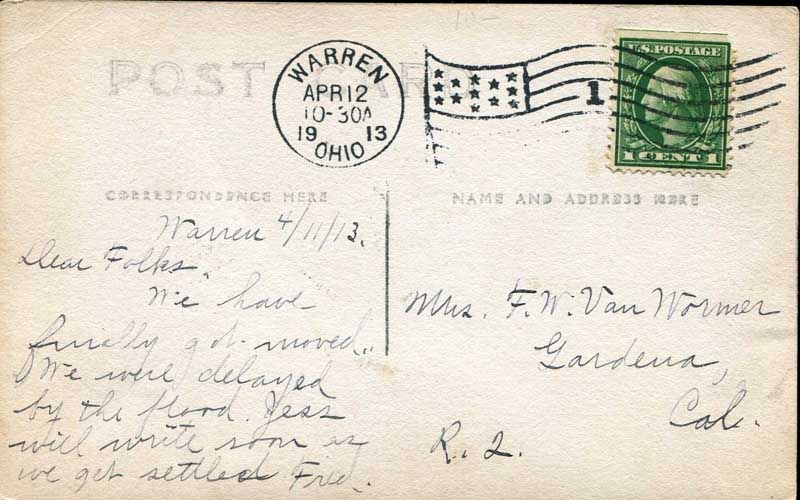 POST CARD
WARREN
APR 12
10-30A
19 13
OHIO
1
U.S. POSTAGE
1 CENT 1
CORRESPONDENCE HERE
NAME AND ADDRESS HERE
Warren 4/11/13.
Dear Folks.
We have
finally got moved.
We were delayed
by the flood. Jess
will write soon as
we get settled Fred.
Mrs. F. W. Van Wormer
Gardena,
Cal.
R. 2.